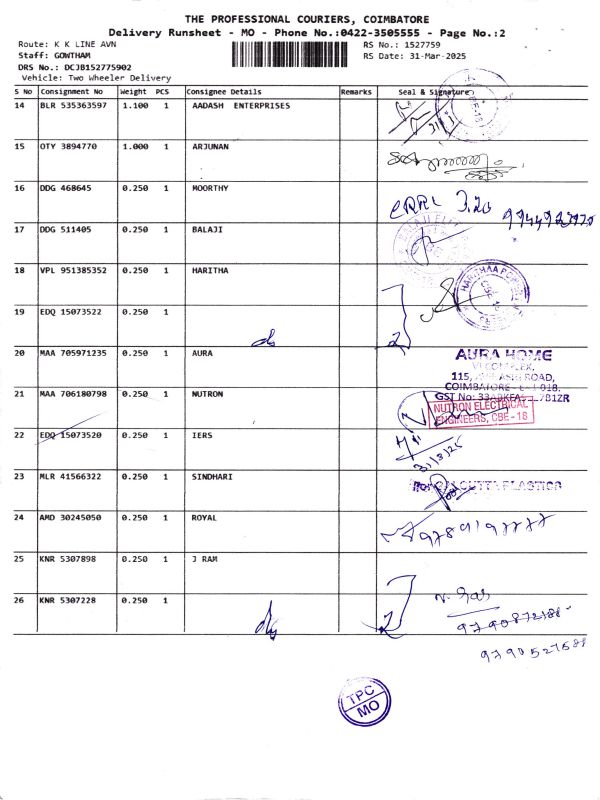 THE PROFESSIONAL COURIERS, COIMBATORE
Delivery Runsheet - MO - Phone No.:0422-3505555 - Page No.:2
Route: K K LINE AVN
RS No.: 1527759
Staff: GOWTHAM
RS Date: 31-Mar-2025
DRS No.: DCJB152775902
Vehicle: Two Wheeler Delivery
S No Consignment No Weight PCS Consignee Details Remarks Seal & Signature
14 BLR 535363597 1.100 1 AADASH ENTERPRISES
15 OTY 3894770 1.000 1 ARJUNAN
16 DDG 468645 0.250 1 MOORTHY
17 DDG 511405 0.250 1 BALAJI
18 VPL 951385352 0.250 1 HARITHA
19 EDQ 15073522 0.250 1
20 MAA 705971235 0.250 1 AURA
AURA HOME
115,
ROAD,
COIMBATORE
GST No:
21 MAA 706180798 0.250 1 NUTRON
NUTRON ELECTRICAL
ENGINEERS, CBE-18
22 EDQ 15073520 0.250 1 IERS
31/3/25
23 MLR 41566322 0.250 1 SINDHARI
PLASTICS
24 AMD 30245050 0.250 1 ROYAL
25 KNR 5307898 0.250 1 J RAM
26 KNR 5307228 0.250 1
TPC
MO